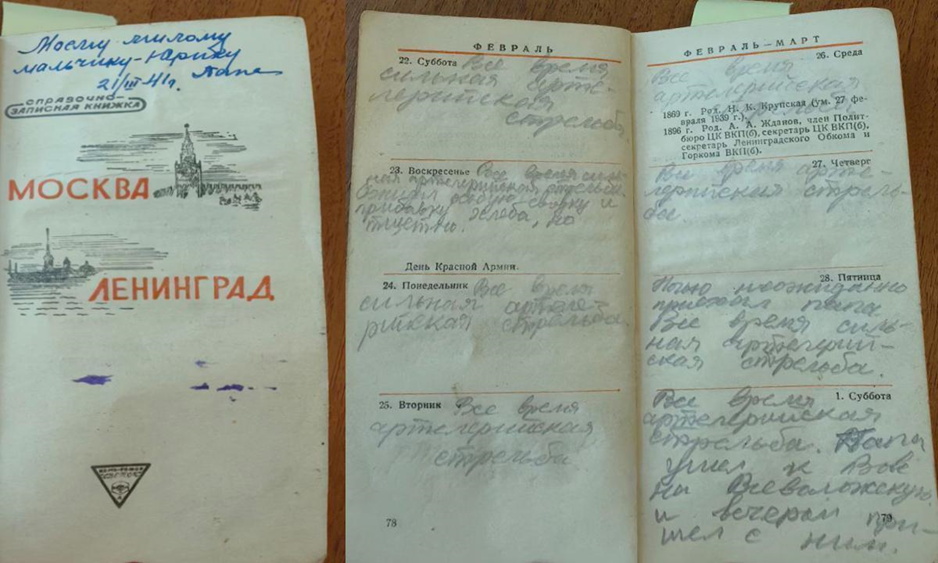 Моему милому
мальчику-Юрику
Папа
21/III 41 г.
СПРАВОЧНО-
ЗАПИСНАЯ КНИЖКА
МОСКВА
ЛЕНИНГРАД
ФЕВРАЛЬ
22. Суббота Все время
сильная арте-
лерийская
стрельба.
23. Воскресенье Все время силь-
ная артелерийская стрельба.
сводку и
прибавку хлеба, но
тщетно.
День Красной Армии.
24. Понедельник Все время
сильная артеле-
рийская стрельба.
25. Вторник Все время
артелерийская
стрельба
78
ФЕВРАЛЬ—МАРТ
26. Среда
Все время
артелерийская
стрельба
1869 г. Род. Н. К. Крупская (ум. 27 фе-
враля 1939 г.).
1896 г. Род. А. А. Жданов, член Полит-
бюро ЦК ВКП(б), секретарь ЦК ВКП(б),
секретарь Ленинградского Обкома и
Горкома ВКП(б).
27. Четверг
Все время арте-
лерийская стрель-
ба.
28. Пятница
Ночью неожиданно
приехал папа.
Все время силь-
ная артелерий-
ская стрельба.
1. Суббота
Все время
артелерийская
стрельба. Папа
ушел к Вове
на Всеволожскую
и вечером при-
шел с ним.
79